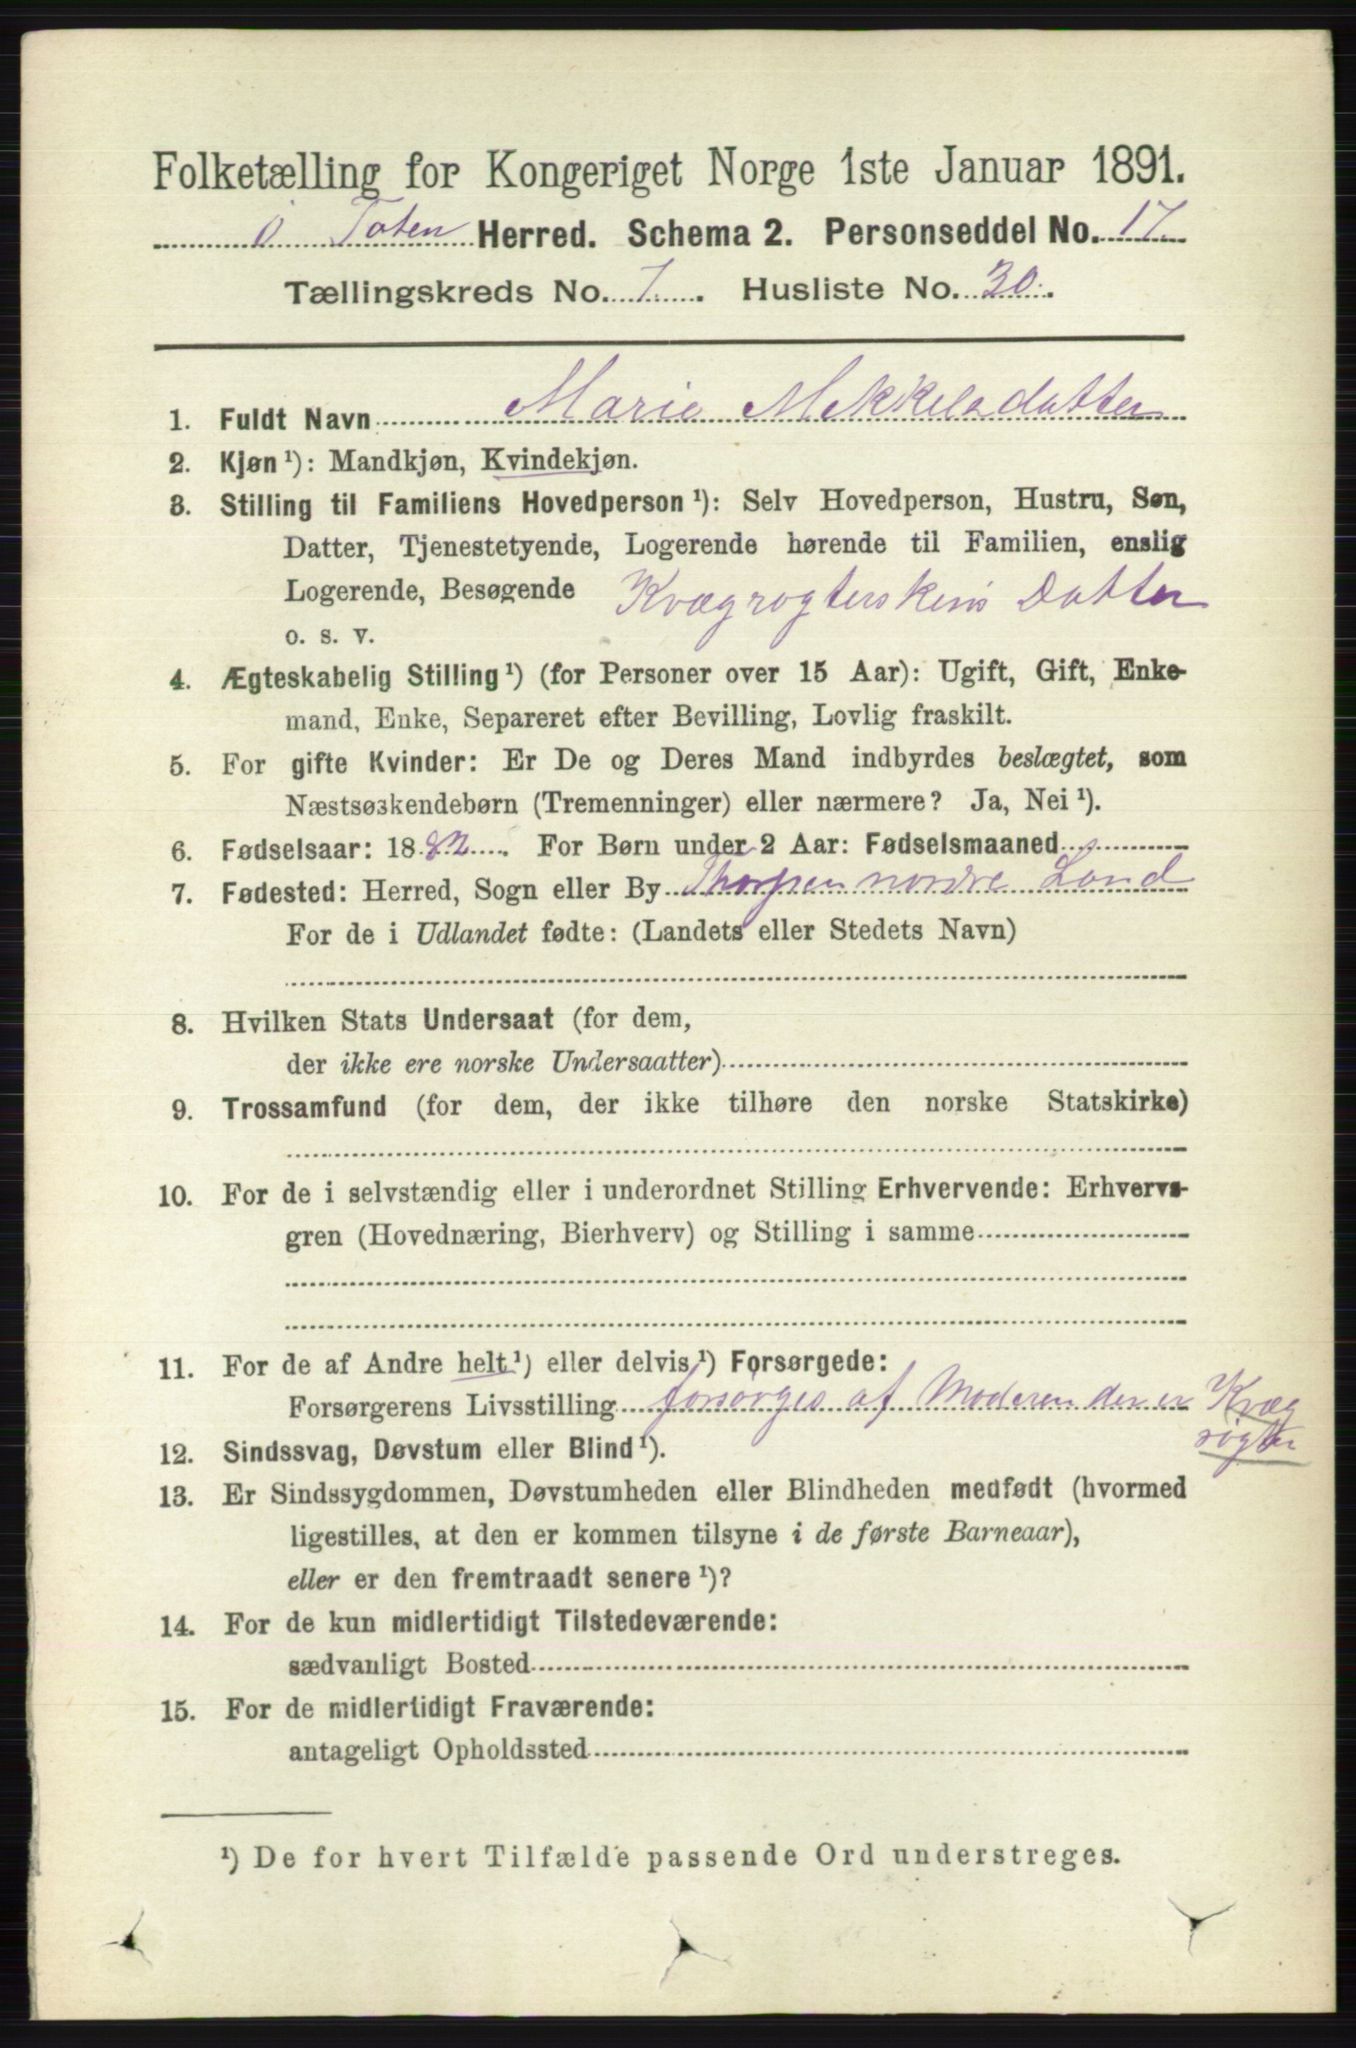 Folketælling for Kongeriget Norge 1ste Januar 1891.
Ö Toten Herred. Schema 2. Personseddel No. 17.
Tællingskreds No. 7. Husliste No. 30.
1. Fuldt Navn Marie Mekkelsdatter
2. Kjøn¹): Mandkjøn, Kvindekjøn.
3. Stilling til Familiens Hovedperson¹): Selv Hovedperson, Hustru, Søn,
Datter, Tjenestetyende, Logerende hørende til Familien, enslig
Logerende, Besøgende Kvægrøgterskens Datter
o. s. v.
4. Ægteskabelig Stilling¹) (for Personer over 15 Aar): Ugift, Gift, Enke-
mand, Enke, Separeret efter Bevilling, Lovlig fraskilt.
5. For gifte Kvinder: Er De og Deres Mand indbyrdes beslægtet, som
Næstsøskendebørn (Tremenninger) eller nærmere? Ja, Nei¹).
6. Fødselsaar: 1882. For Børn under 2 Aar: Fødselsmaaned
7. Fødested: Herred, Sogn eller By Thorpen nordre Land
For de i Udlandet fødte: (Landets eller Stedets Navn)
8. Hvilken Stats Undersaat (for dem,
der ikke ere norske Undersaatter)
9. Trossamfund (for dem, der ikke tilhøre den norske Statskirke)
10. For de i selvstændig eller i underordnet Stilling Erhvervende: Erhvervs-
gren (Hovednæring, Bierhverv) og Stilling i samme
11. For de af Andre helt¹) eller delvis¹) Forsørgede:
Forsørgerens Livsstilling forsörges af Moderen der er Kvæg
rögter
12. Sindssvag, Døvstum eller Blind¹).
13. Er Sindssygdommen, Døvstumheden eller Blindheden medfødt (hvormed
ligestilles, at den er kommen tilsyne i de første Barneaar),
eller er den fremtraadt senere¹)?
14. For de kun midlertidigt Tilstedeværende:
sædvanligt Bosted
15. For de midlertidigt Fraværende:
antageligt Opholdssted
¹) De for hvert Tilfælde passende Ord understreges.